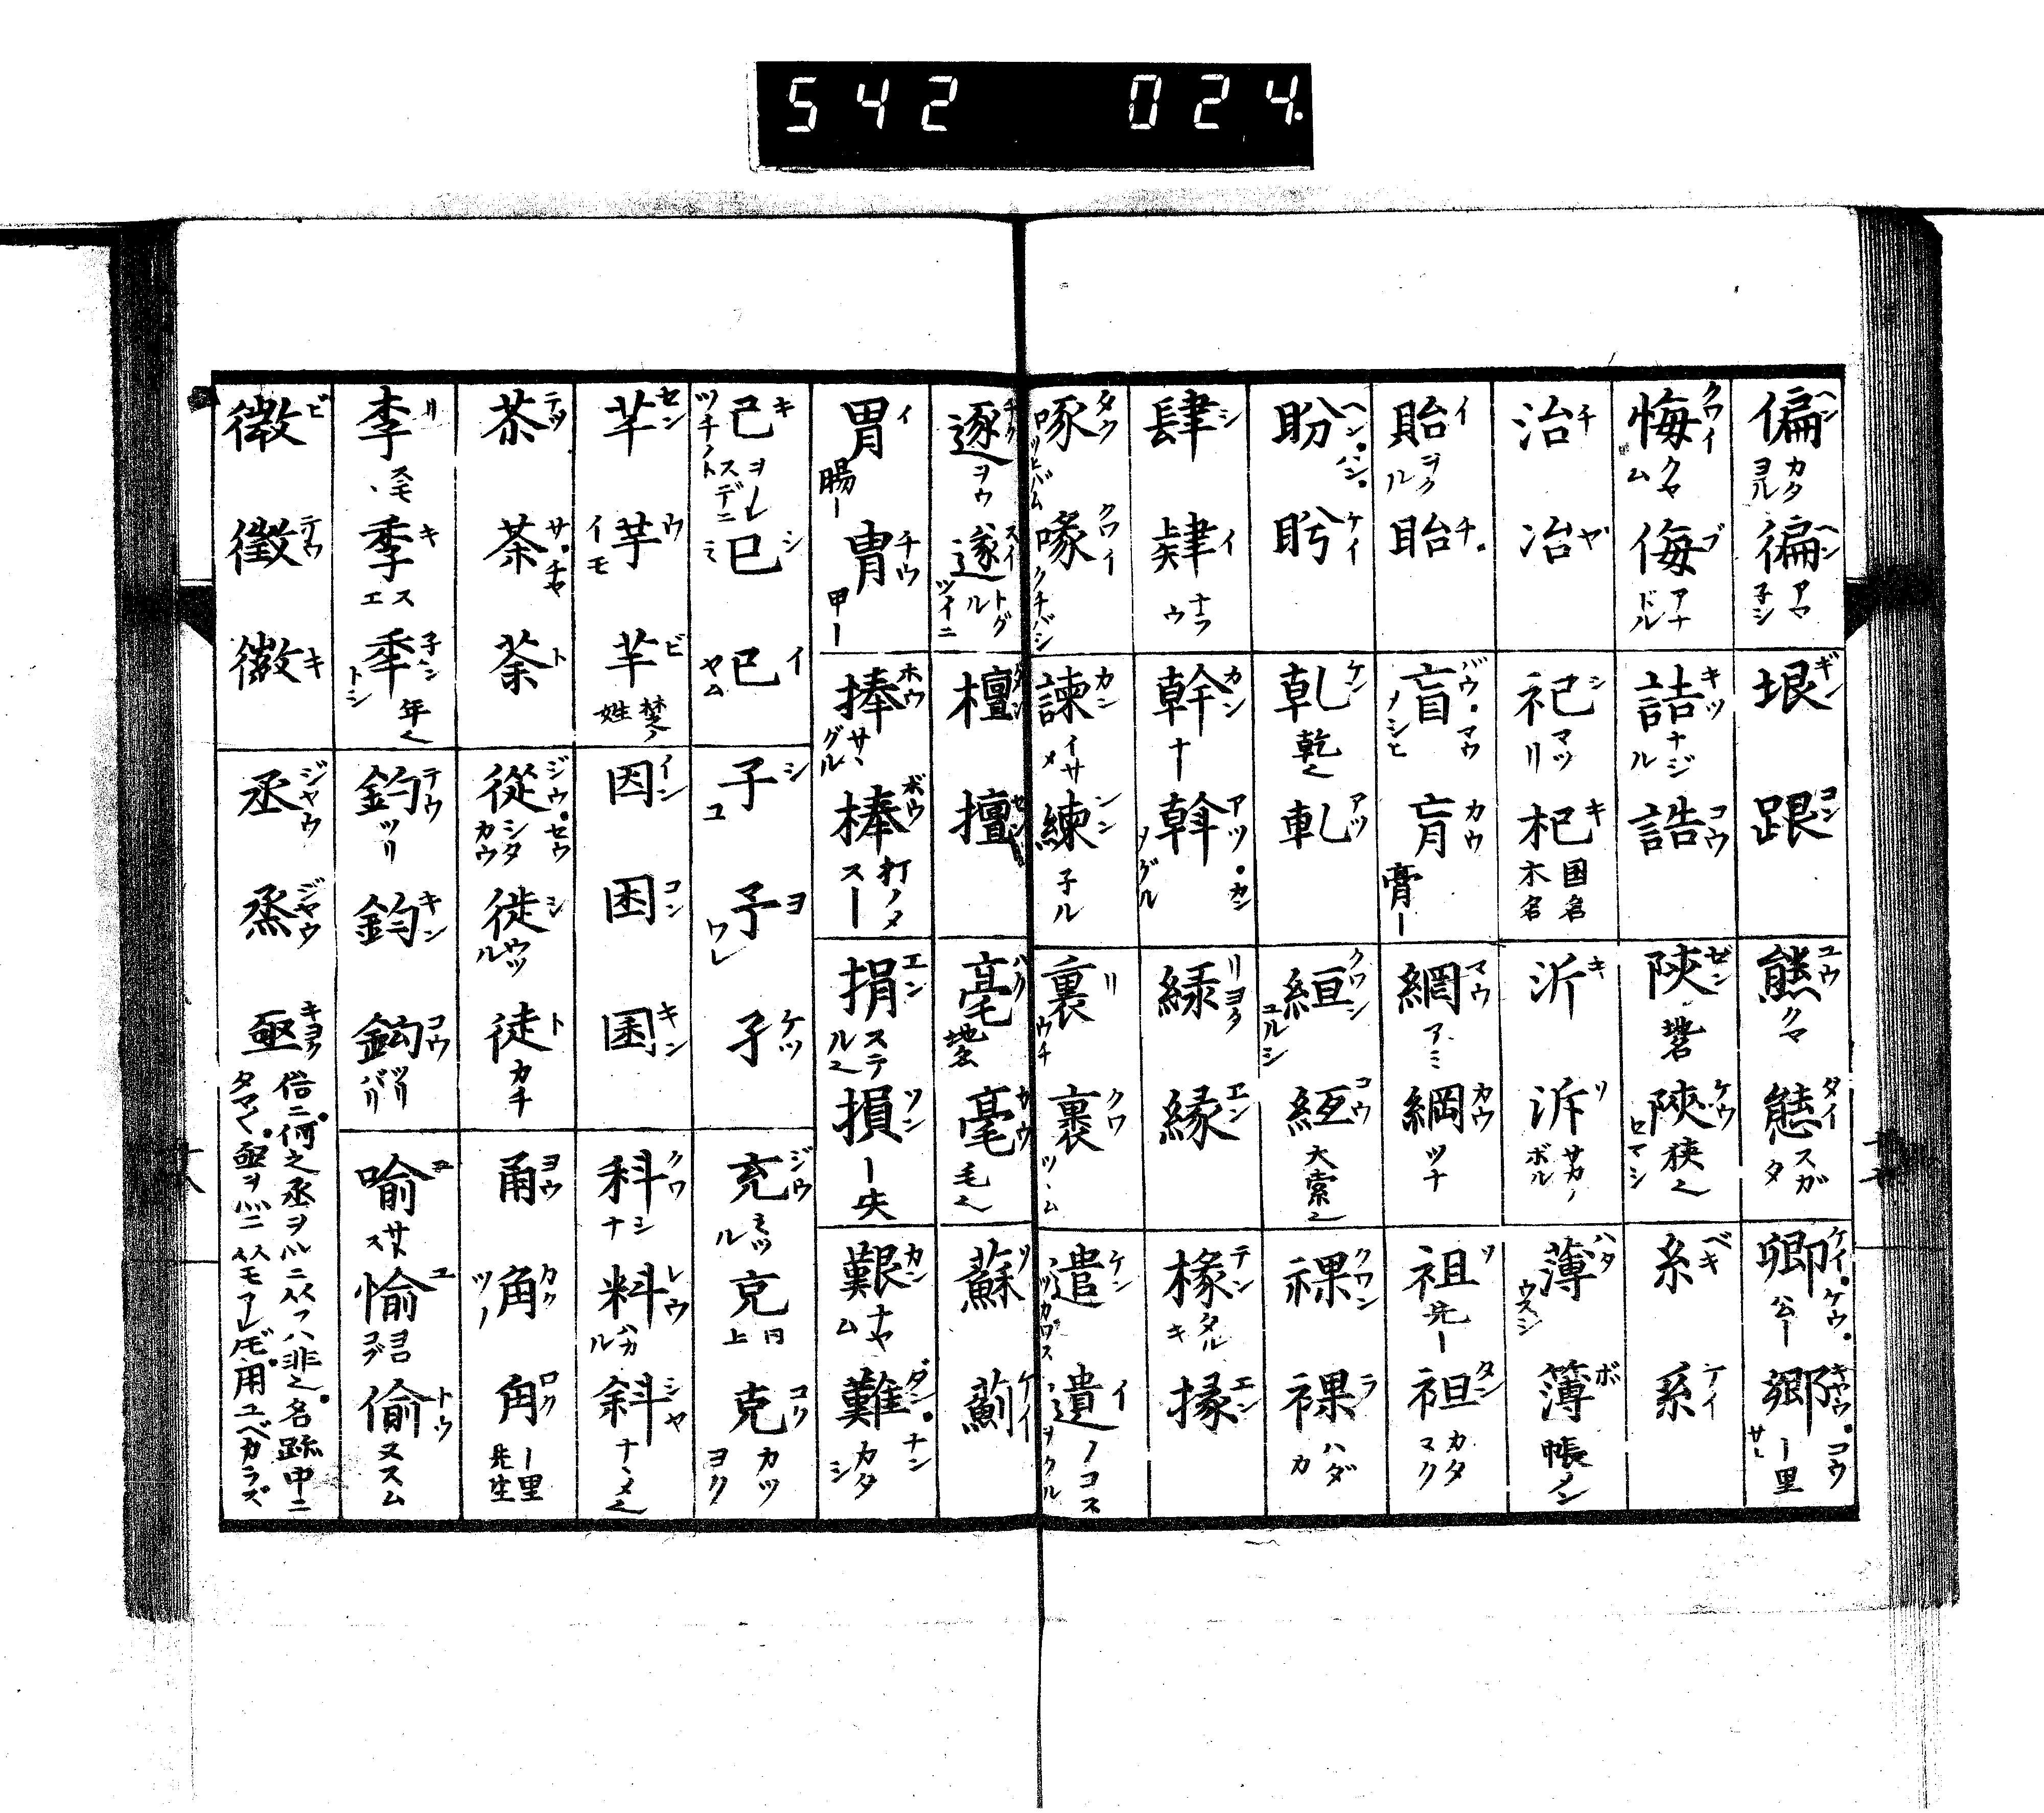 542 024.
偏 ヘン カタヨル 徧 ヘン アマ子シ 垠 ギン 跟 コン 熊 ユウ クマ 態 タイ スガタ 卿 ケイ・ケウ・ 公ー 鄕 キヤウ・コウ ー里 サト
悔 クワイ クヤム 侮 ブ アナドル 詰 キツ ナジル 誥 コウ 陝 ゼン 地名 陜 ケウ 狭也 セマシ 糸 ベキ 系 ケイ
治 チ 冶 ヤ 祀 シ マツリ 杞 キ 国名 木名 沂 キ 泝 ソ サカノボル 薄 ハク ウスシ 簿 ボ 帳メン
貽 イ ヲクル 眙 チ・ 盲 バウ・マウ メシヒ 肓 カウ 膏ー 網 マウ アミ 綱 カウ ツナ 祖 ソ 先ー 袒 タン カタマク
盼 ヘン・ハン・ 盻 ケイ 乹 ケン 乾也 軋 アツ 絙 クワン ユルシ 縆 コウ 大索也 祼 クワン 裸 ラ ハダカ
肆 シ 肄 イ ナラウ 幹 カン ナー 斡 アツ・カン メグル 緑 リヨク 縁 エン 椽 テン タルキ 掾 エン
啄 タク ツヒバム 喙 クワイ クチバシ 諫 カン イサメ 練 レン 子ル 裏 リ ウチ 裹 クワ ツヽム 遣 ケン ツカワス ヲクル 遺 イ ノコス
逐 チク ヲウ 遂 スイ トグル ツイニ 檀 タン 擅 セン 亳 ハク 地名 毫 カウ 毛也 蘇 ソ 薊 ケイ
胃 イ 腸ー 冑 チウ 甲ー 捧 ホウ サヽグル 棒 ボウ 打ノメスー 捐 エン ステル也 損 ソン ー失 艱 カン ナヤム 難 ダン・ナン カタシ
己 キ ヲレ ツチノト 已 シ スデニ ミ 巳 イ ヤム 子 シ ユ 予 ヨ ワレ 孑 ケツ 充 ジウ ミツル 克 同上 克 コク カツ ヨク
芊 セン 芋 ウ イモ 芈 ビ 楚ノ姓 因 イン 困 コン 囷 キン 科 クワ シナ 料 レウ ハカル 斜 シヤ ナヽメ也
苶 テツ 茶 サ・チヤ 荼 ト 從 ジウ・セウ シタカウ 徙 シ ウツル 徒 ト カチ 甬 ヨウ 角 カク ツノ 甪 ロク ー里先生
李 リ スモヽ 季 キ スエ 秊 子ン 年也 トシ 釣 テウ ツリ 鈞 キン 鉤 コウ ツリバリ 喩 ユ サトス 愉 ユ ヨロコブ 偷 トウ ヌスム
微 ビ 徵 テウ 徽 キ 丞 ジヤウ 烝 ジヤウ 亟 キヨク 俗ニ何之丞ヲ灬ニ从フハ非也名跡中ニタマ〱亟ヲ灬ニ从モアレドモ用ユベカラズ